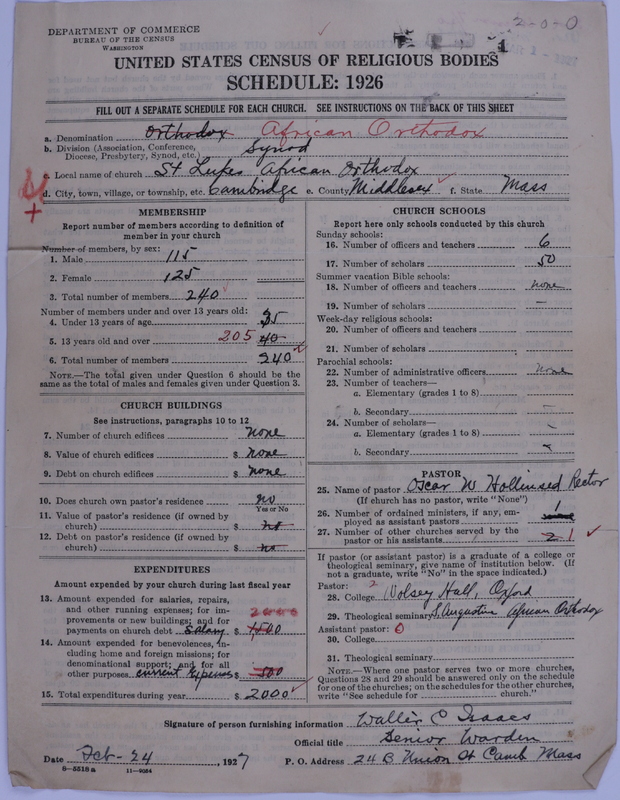 2-0-0
DEPARTMENT OF COMMERCE
BUREAU OF THE CENSUS
WASHINGTON
UNITED STATES CENSUS OF RELIGIOUS BODIES
SCHEDULE: 1926
FILL OUT A SEPARATE SCHEDULE FOR EACH CHURCH. SEE INSTRUCTIONS ON THE BACK OF THIS SHEET
a. Denomination Orthodox African Orthodox
b. Division (Association, Conference, Diocese, Presbytery, Synod, etc.) Synod
c. Local name of church St Lukes African Orthodox
d. City, town, village, or township, etc. Cambridge e. County Middlesex f. State Mass
MEMBERSHIP
Report number of members according to definition of
member in your church
Number of members, by sex:
1. Male 115
2. Female 125
3. Total number of members 240
Number of members under and over 13 years old:
4. Under 13 years of age 35
5. 13 years old and over 205 40
6. Total number of members 240
NOTE.—The total given under Question 6 should be the
same as the total of males and females given under Question 3.
CHURCH BUILDINGS
See instructions, paragraphs 10 to 12
7. Number of church edifices none
8. Value of church edifices $ none
9. Debt on church edifices $ none
10. Does church own pastor's residence no
Yes or No
11. Value of pastor's residence (if owned by
church) $ no
12. Debt on pastor's residence (if owned by
church) $ no
EXPENDITURES
Amount expended by your church during last fiscal year
13. Amount expended for salaries, repairs,
and other running expenses; for im-
provements or new buildings; and for
payments on church debt salary $ 1500 2000
14. Amount expended for benevolences, in-
cluding home and foreign missions; for
denominational support; and for all
other purposes current Expenses $ 500
15. Total expenditures during year $ 2000
CHURCH SCHOOLS
Report here only schools conducted by this church
Sunday schools:
16. Number of officers and teachers 6
17. Number of scholars 50
Summer vacation Bible schools:
18. Number of officers and teachers none
19. Number of scholars —
Week-day religious schools:
20. Number of officers and teachers
21. Number of scholars
Parochial schools:
22. Number of administrative officers none
23. Number of teachers—
a. Elementary (grades 1 to 8)
b. Secondary —
24. Number of scholars—
a. Elementary (grades 1 to 8) —
b. Secondary -
PASTOR
25. Name of pastor Oscar W Hollinsed Rector
(If church has no pastor, write "None")
26. Number of ordained ministers, if any, em-
ployed as assistant pastors 1
27. Number of other churches served by the
pastor or his assistants 2 1
If pastor (or assistant pastor) is a graduate of a college or
theological seminary, give name of institution below. (If
not a graduate, write "No" in the space indicated.)
Pastor: 2
28. College Wolsey Hall, Oxford
29. Theological seminary S. Augustine African Orthodox
Assistant pastor: 0
30. College
31. Theological seminary
NOTE.—Where one pastor serves two or more churches,
Questions 28 and 29 should be answered only on the schedule
for one of the churches; on the schedules for the other churches,
write "See schedule for church."
Signature of person furnishing information Walter C Isaacs
Official title Senior Warden
Date Feb-24, 1927 P. O. Address 24 B Union St Camb Mass
8-5518a 11-9084